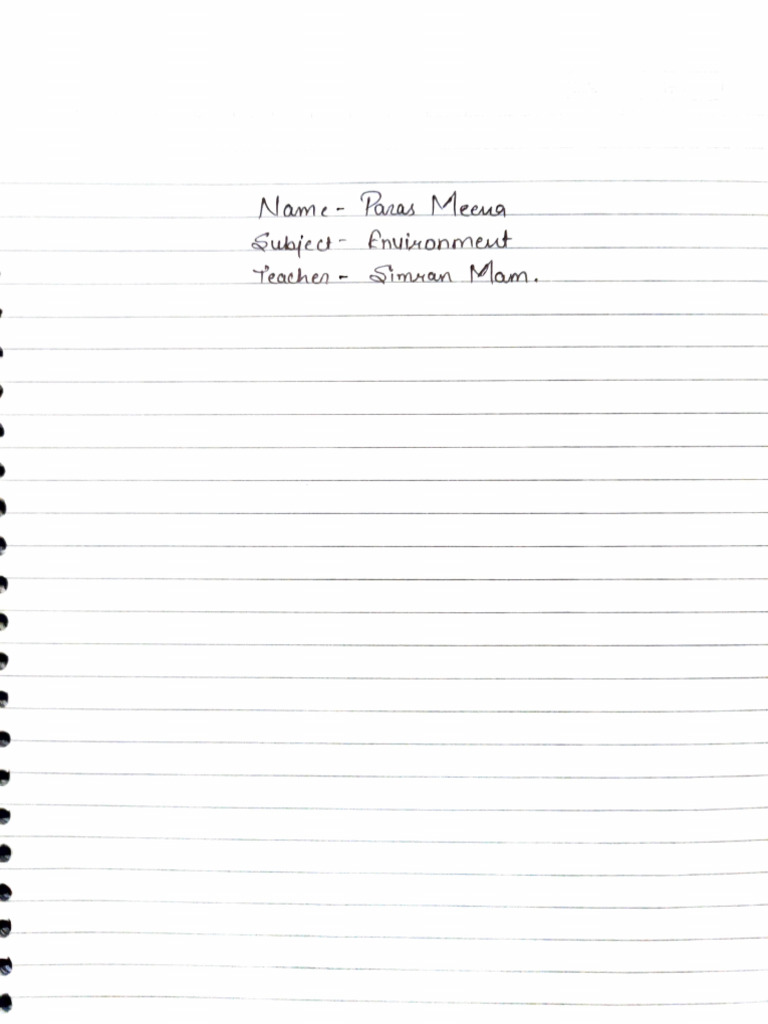 Name - Paras Meena
Subject - Environment
Teacher - Simran Mam.